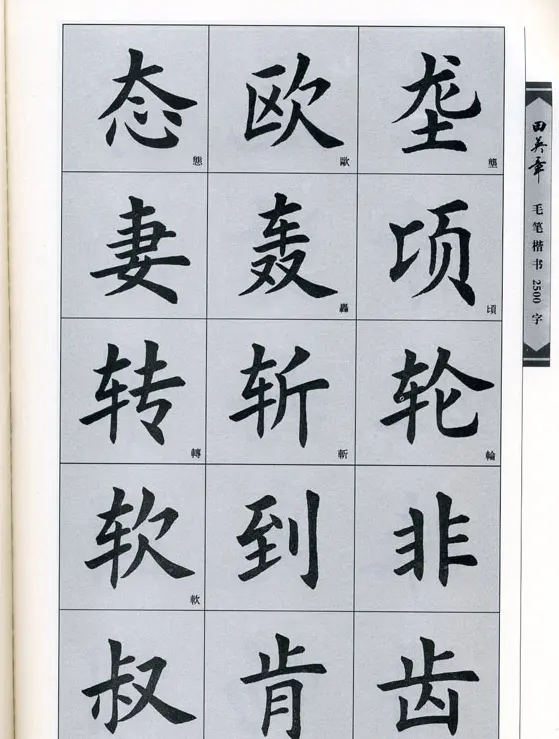 态態 欧歐 垄壟
妻 轰轟 顷頃
转轉 斩斬 轮輪
软軟 到 非
叔 肯 齿
田英章 毛笔楷书2500字